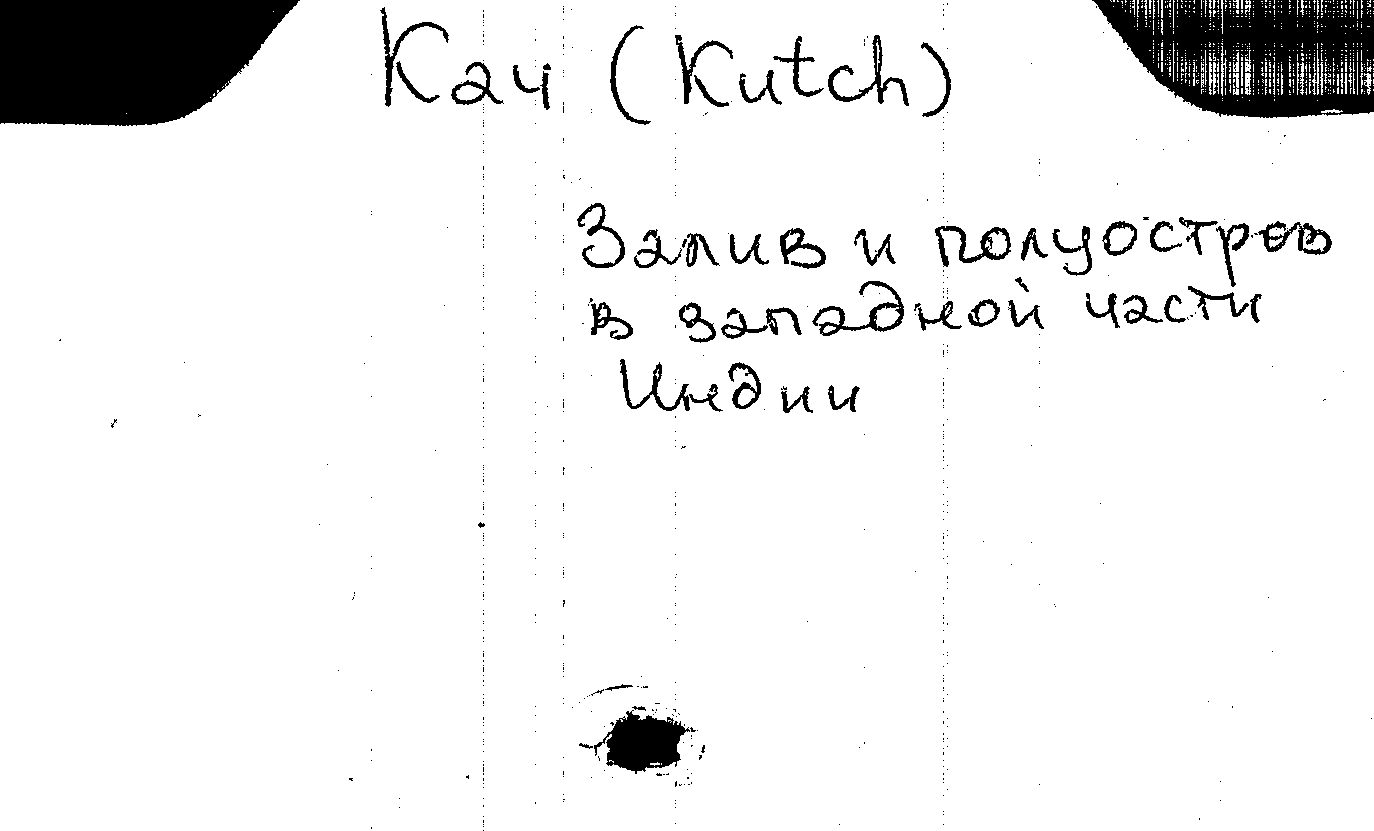 Кач (Kutch)
Залив и полуостров
в западной части
Индии